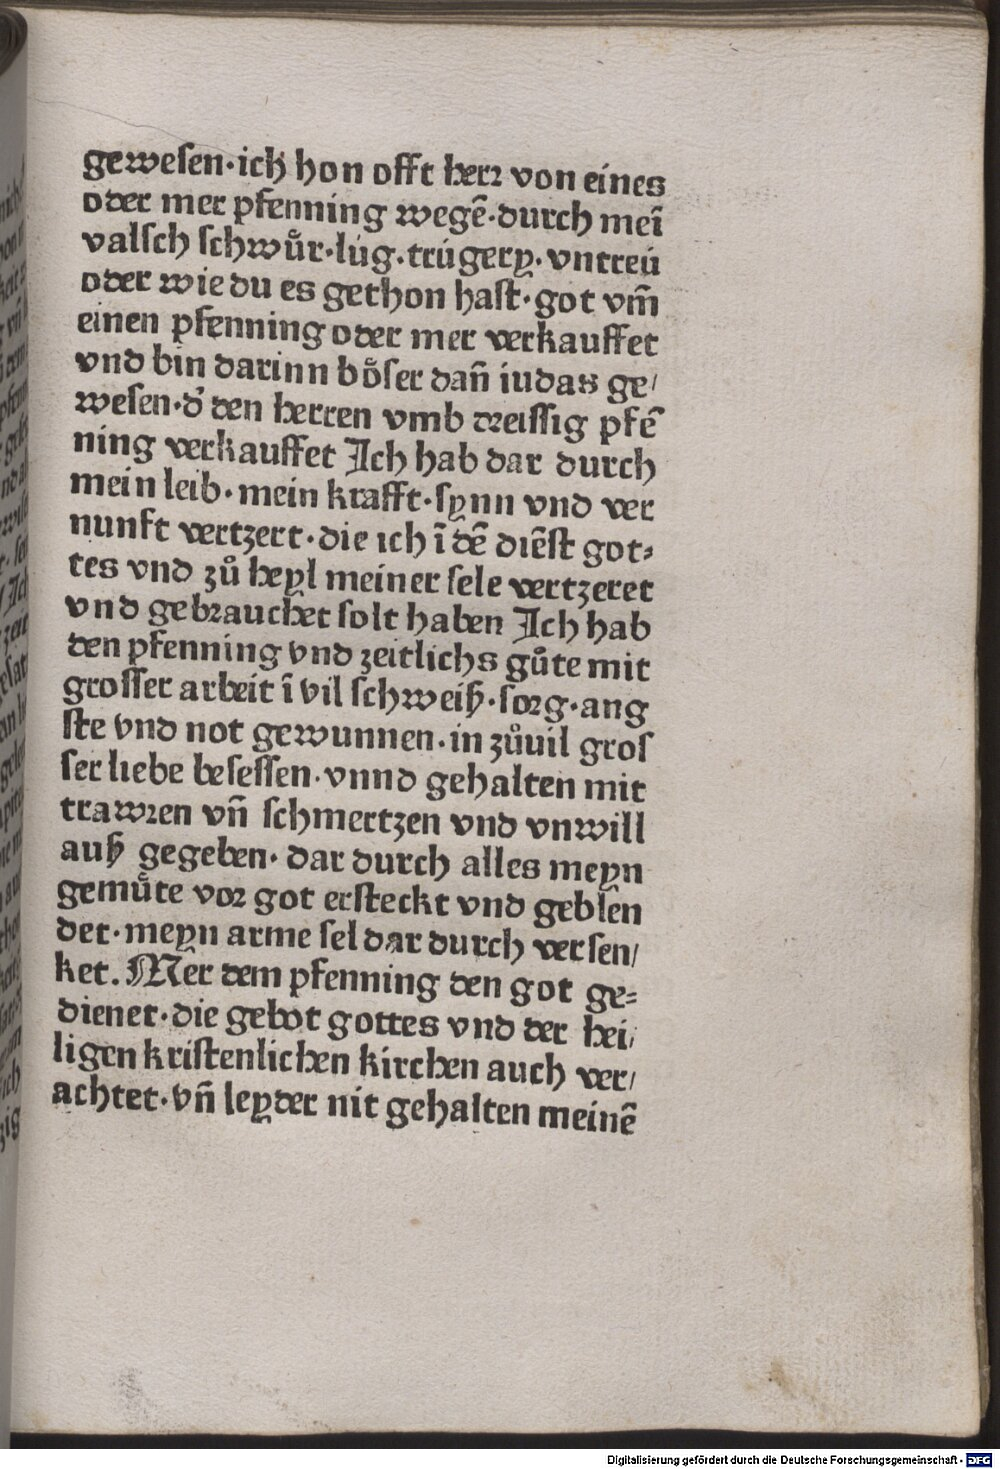 gewesen·ich hon offt herꝛ von eines
oder mer pfenning wegē·durch meī
valsch schwuͤr·lúg·trúgery·vntreú
oder wie du es gethon hast·got vm̄
einen pfenning oder mer verkauffet
vnd bin darinn boͤser dañ iudas ge/
wesen·d᷎ den herren vmb dreissig pfē
ning verkauffet Ich hab dar durch
mein leib·mein krafft·synn vnd ver
nunft vertzert·die ich ī dē diēst got⸗
tes vnd zuͦ heyl meiner sele vertzeret
vnd gebrauchet solt haben Ich hab
den pfenning vnd zeitlichs guͦte mit
grosser arbeit ī vil schweiß·sorg·ang
ste vnd not gewunnen·in zuͦuil gros
ser liebe besessen·vnnd gehalten mit
trawren vñ schmertzen vnd vnwill
auß gegeben·dar durch alles meyn
gemuͤte vor got ersteckt vnd geblen
det·meyn arme sel dar durch versen/
ket.Mer dem pfenning den got ge⸗
dienet·die gebot gottes vnd der hei/
ligen kristenlichen kirchen auch ver/
achtet·vñ leyder nit gehalten meinē
Digitalisierung gefördert durch die Deutsche Forschungsgemeinschaft - DFG